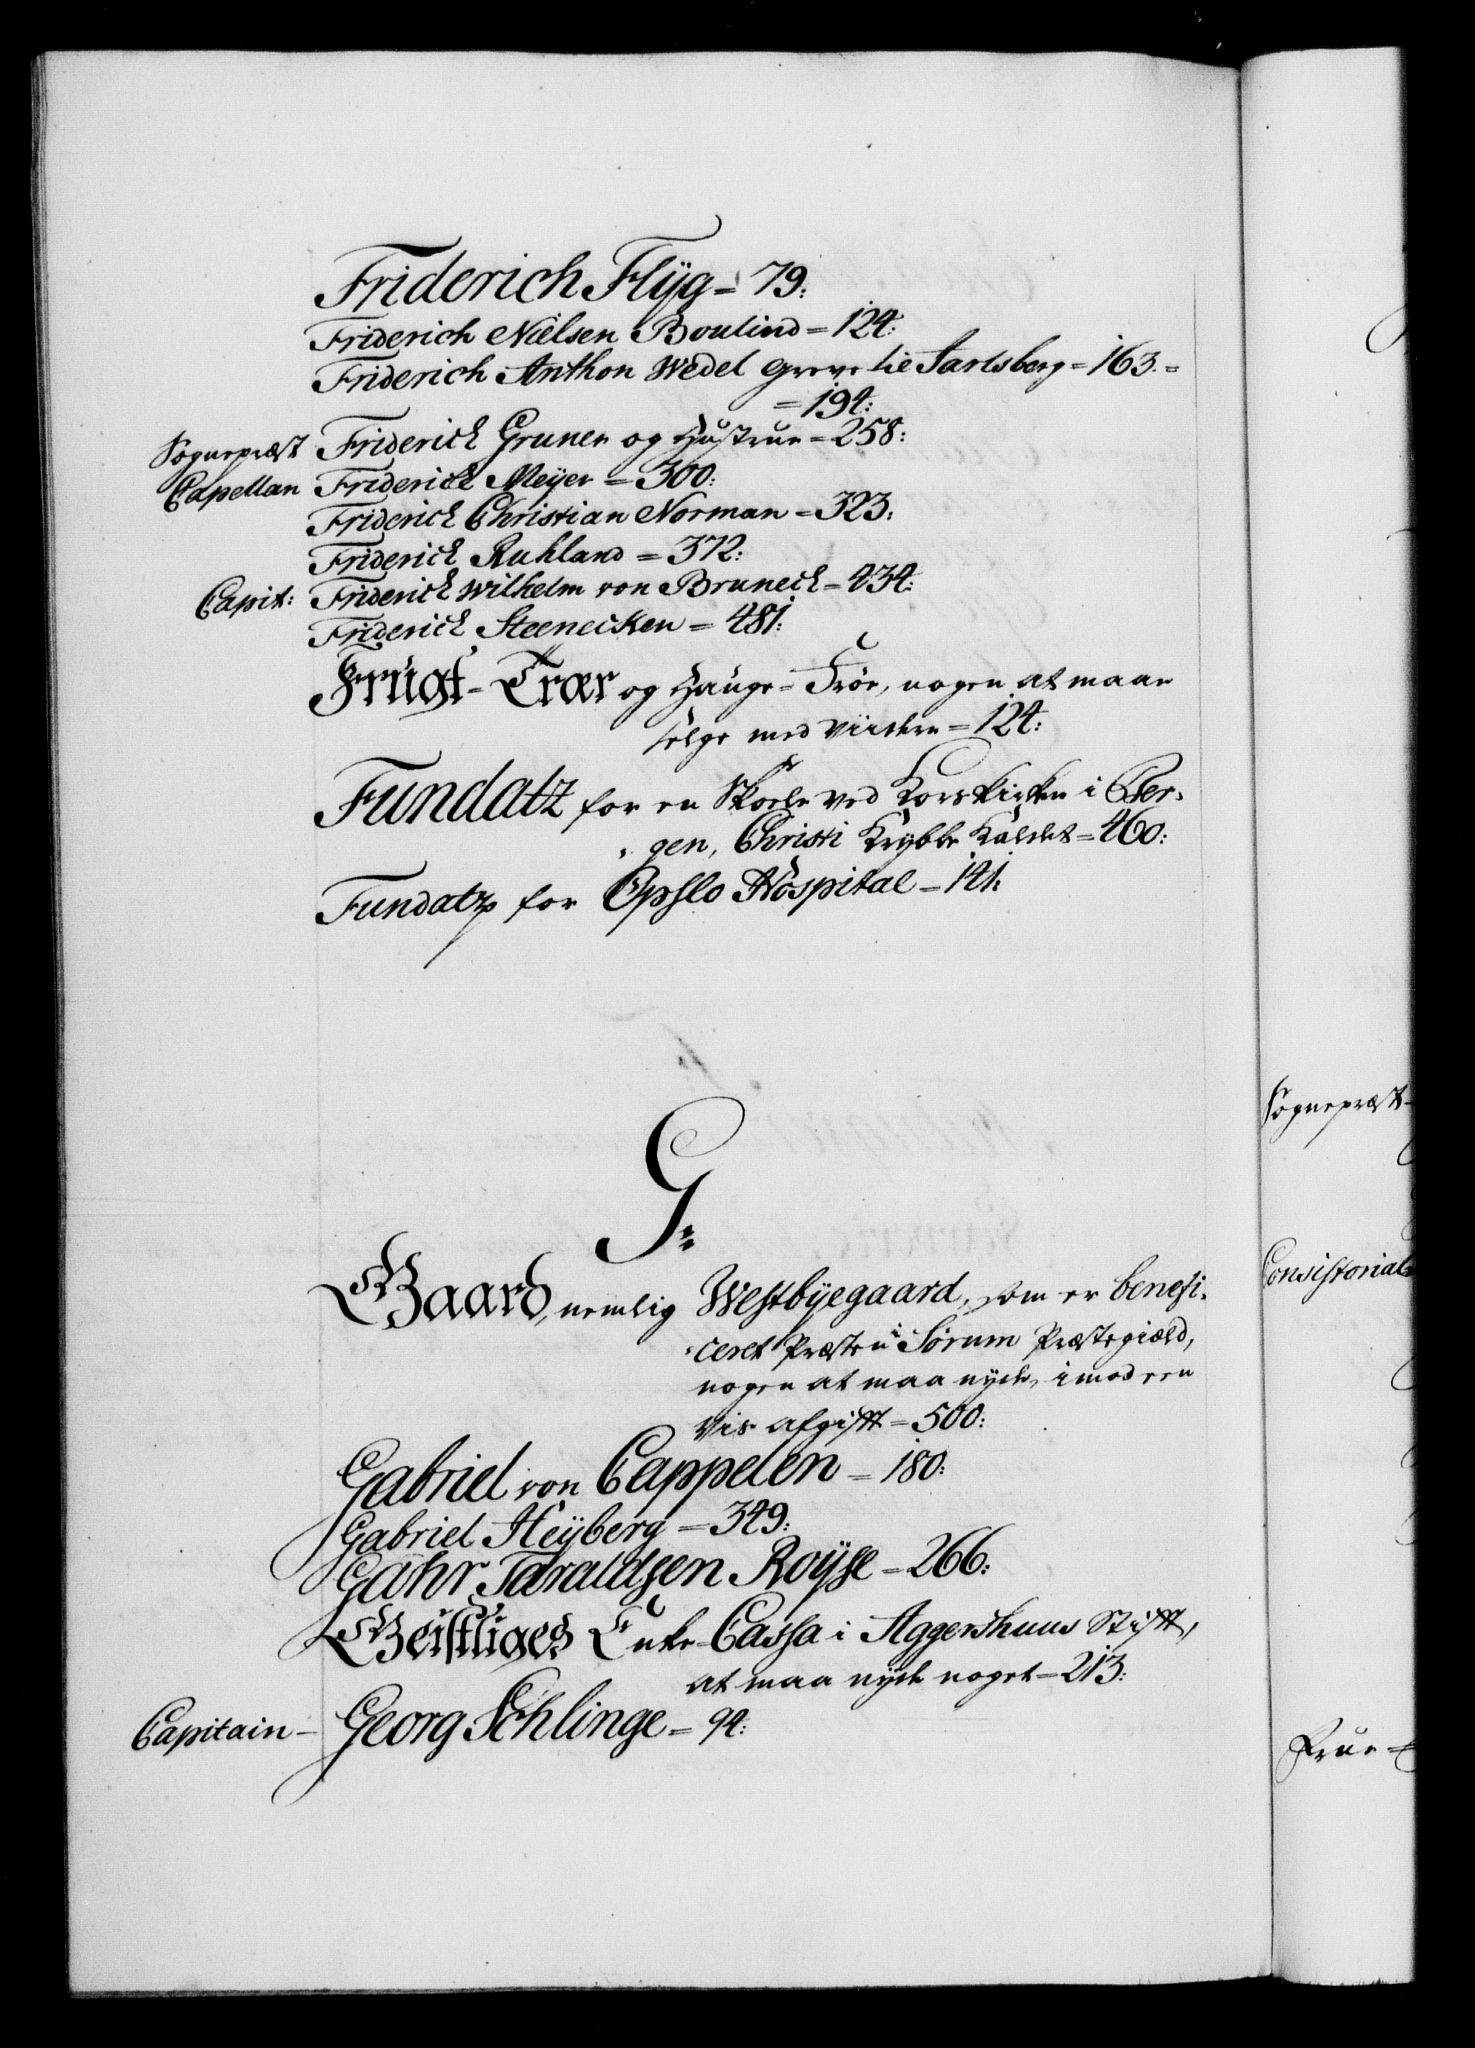 Friderich Flÿg = 79:
Friderich Nielsen Boulind = 124:
Friderich Anthon Wedel Greve til Jarlsberg = 163. =
= 194:
Sognepræst Friderich Gruner og Hustrue = 258:
Capellan Friderich Meÿer = 300:
Friderich Christian Norman = 323:
Friderich Ruhland = 372:
Capit: Friderich Wilhelm von Bruneck = 434:
Friderich Steenecken = 481:
Frugt-Træer og Hauge-Frøe, nogen at maae
selge med viidere = 124:
Fundatz for en Skoele ved Korskirken i Ber-
gen, Christi Krybbe kaldet = 460:
Fundatz for Opslo Hospital = 141:
G:
Gaard, nemlig Westbÿegaard, som er benefi-
ceret Præsten i Sørum Præstegiæld,
nogen at maa nyde, imod een
vis afgifft = 500:
Gabriel von Cappelen = 180:
Gabriel Heÿberg = 349:
Gahr Taraldsen Roÿse = 266:
Geistliges Enke-Cassa i Aggershuus Stifft,
at maa nyde noget = 213:
Capitain - Georg Schlinge = 94:
Sognepræst -
Consistorial
Frue =